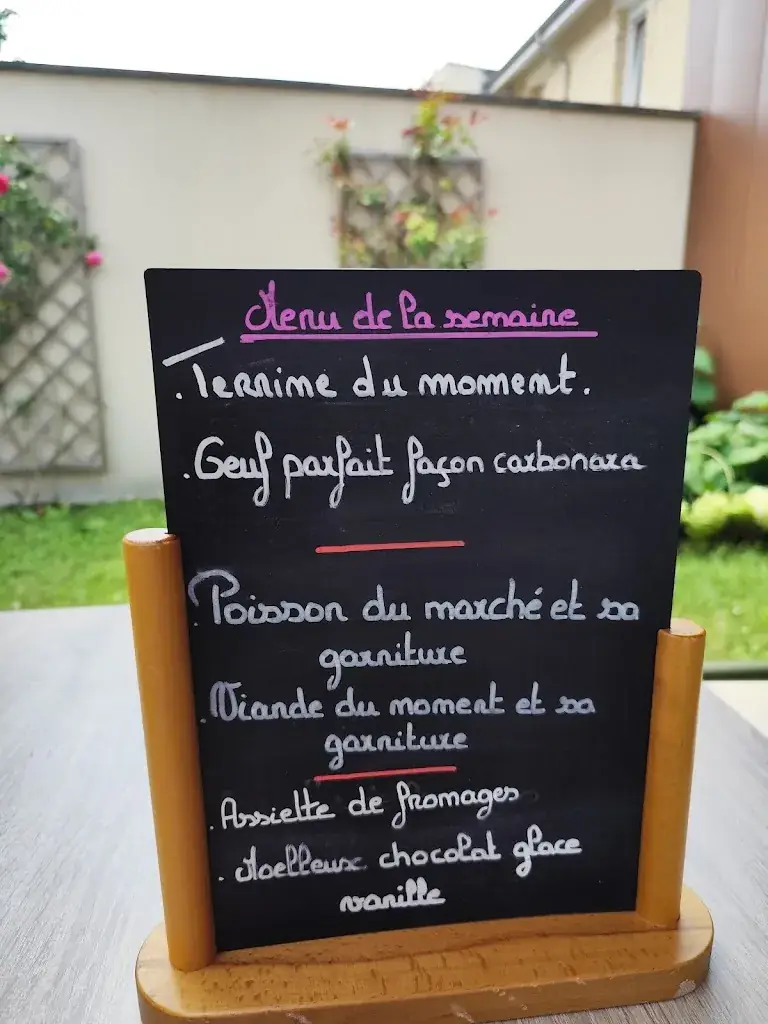 Menu de la semaine
. Terrine du moment.
. Oeuf parfait façon carbonara
. Poisson du marché et sa
garniture
. Viande du moment et sa
garniture
. Assiette de fromages
. Moelleux chocolat glace
vanille